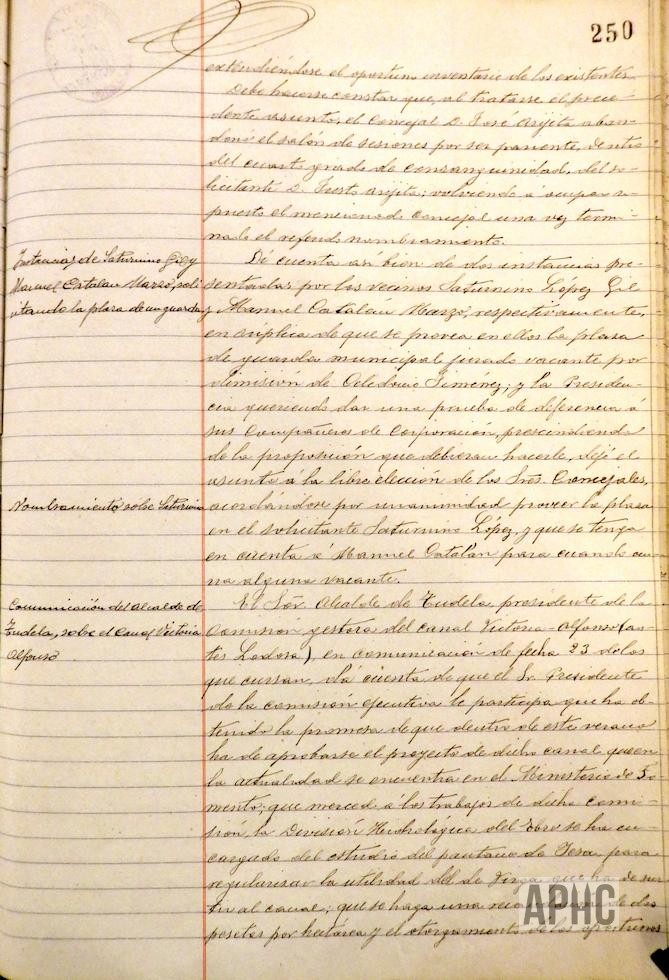 250
extendiéndose el oportuno inventario de los existentes.
Debe hacerse constar que, al tratarse el prece-
dente asunto, el Concejal D. José Arijita aban-
donó el salón de sesiones por ser pariente, dentro
del cuarto grado de consanguinidad, del so-
licitante D. Justo Arijita; volviendo á ocupar su
puesto el mencionado Concejal una vez termi-
nado el referido nombramiento.
Instancias de Saturnino Gil y
Manuel Catalán Marzo, soli
citando la plaza de un guarda
Dí cuenta así bien de dos instancias pre-
sentadas por los vecinos Saturnino López Gil
y Manuel Catalán Marzo, respectivamente,
en súplica de que se provea en ellos la plaza
de guarda municipal jurado vacante por
dimisión de Celedonio Jiménez; y la Presiden-
cia queriendo dar una prueba de deferencia á
sus Compañeros de Corporación, prescindiendo
de la proposición que debieran hacerle, dejó el
asunto á la libre elección de los Sres. Concejales,
Nombramiento sobre Saturnino
acordándose por unanimidad proveer la plaza
en el solicitante Saturnino López, y que se tenga
en cuenta á Manuel Catalán para cuando ocu-
rra alguna vacante.
Comunicación del Alcalde de
Tudela, sobre el Canal Victoria
Alfonso
El Sor. Alcalde de Tudela, presidente de la
Comisión gestora del canal Victoria-Alfonso (an-
tes Lodosa), en comunicación de fecha 23 de los
que cursan, dá cuenta de que el Sr. Presidente
de la comisión ejecutiva le participa que ha ob-
tenido la promesa de que dentro de este verano
ha de aprobarse el proyecto de dicho canal que en
la actualidad se encuentra en el Ministerio de Fo-
mento; que merced á los trabajos de dicha comi-
sión, la División Hidrológica del Ebro se ha en-
cargado del estudio del pantano de para
regularizar la utilidad del de que ha de sur-
tir al canal; que se haga una recaudación de dos
pesetas por hectárea y el otorgamiento de los oportunos
APHC